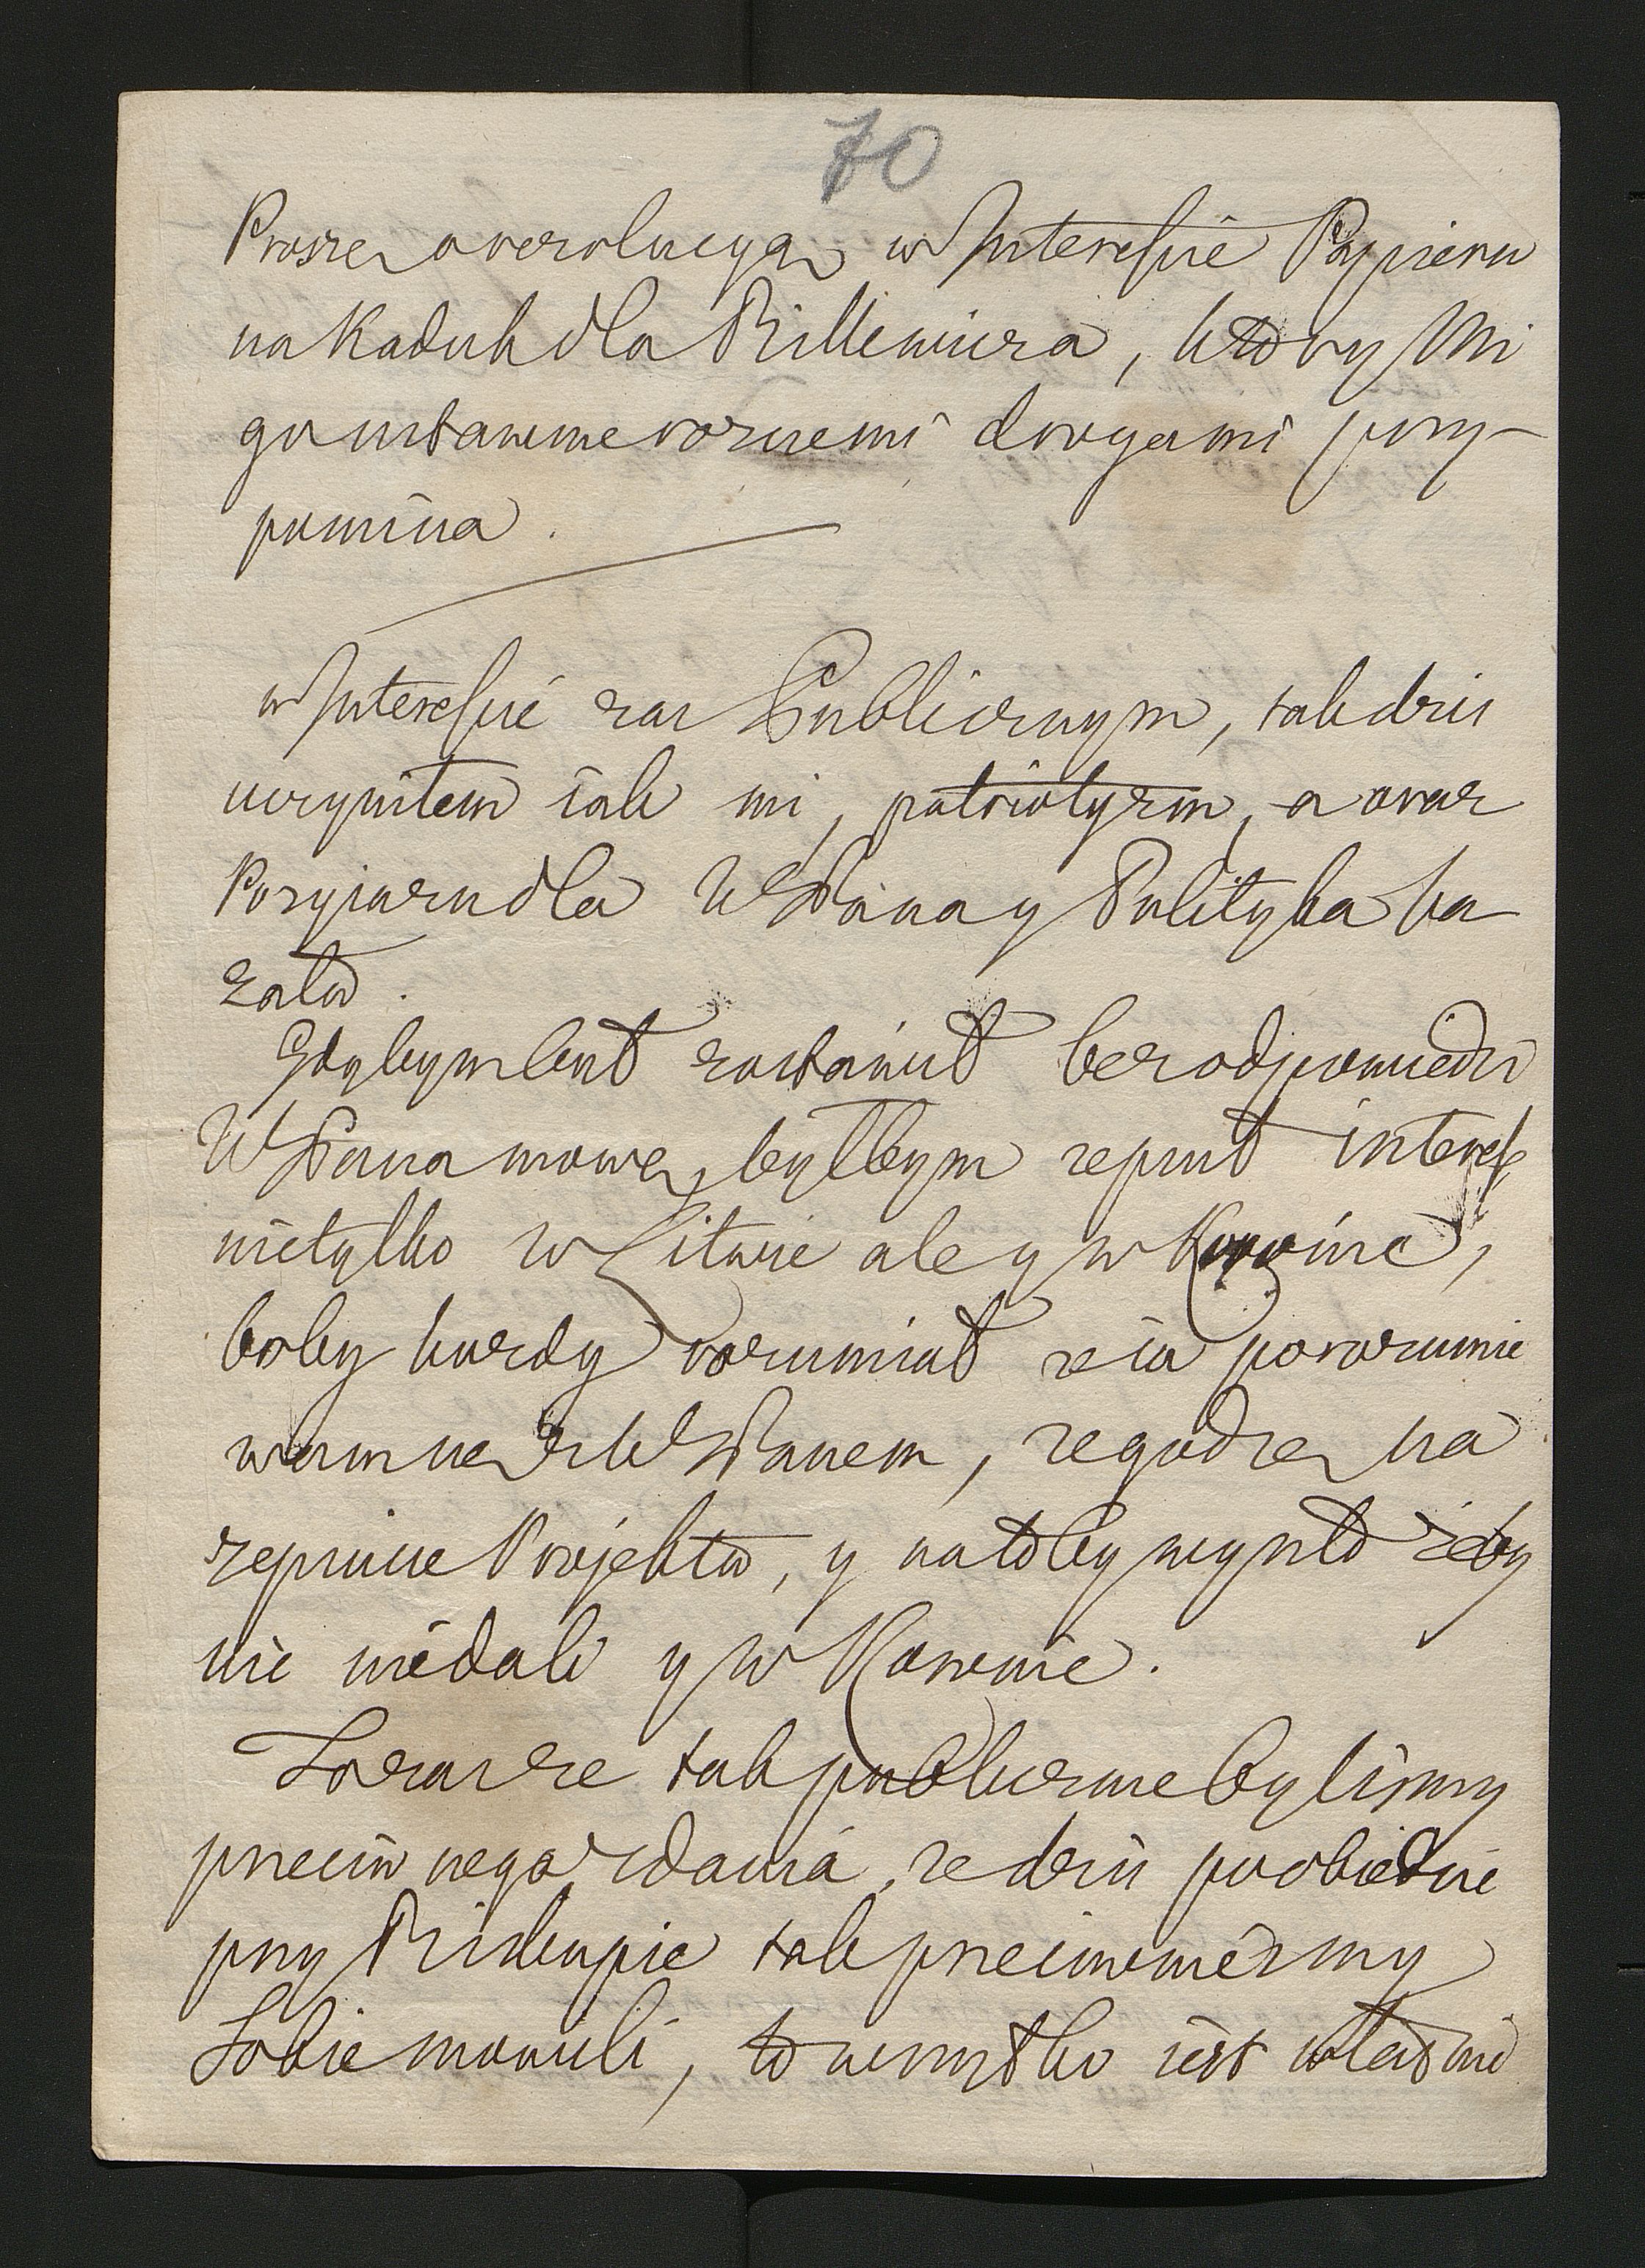 70
Prosze o rezolucyą w Interessie Papieru
na Kaduk dla Billewicza, ktory mi
go ustawnie roznemi drogami przy-
pomina.
w Interessie zas Publicznym, tak dzis
uczyniłem iak mi, patriotyzm, a oraz
Przyiazn dla WPana y Polityka ka-
zała.
Gdybym był zostawił bez odpowiedzi
WPana mowę, byłbym zepsuł interess
nietylko w Litwie ale y w Koronie,
boby kazdy rozumiał ze ia porozumie
wam się z WPanem, ze godze na
zepsucie Projektu, y na toby wyszło żeby
nic niedali y w Koronie.
To zas ze tak publicznie bylismy
przeciwnego zdania, ze dzis po obiedzie
przy Biskupie tak przeciwnieśmy
Sobie mowili, to wszystko iest własnie